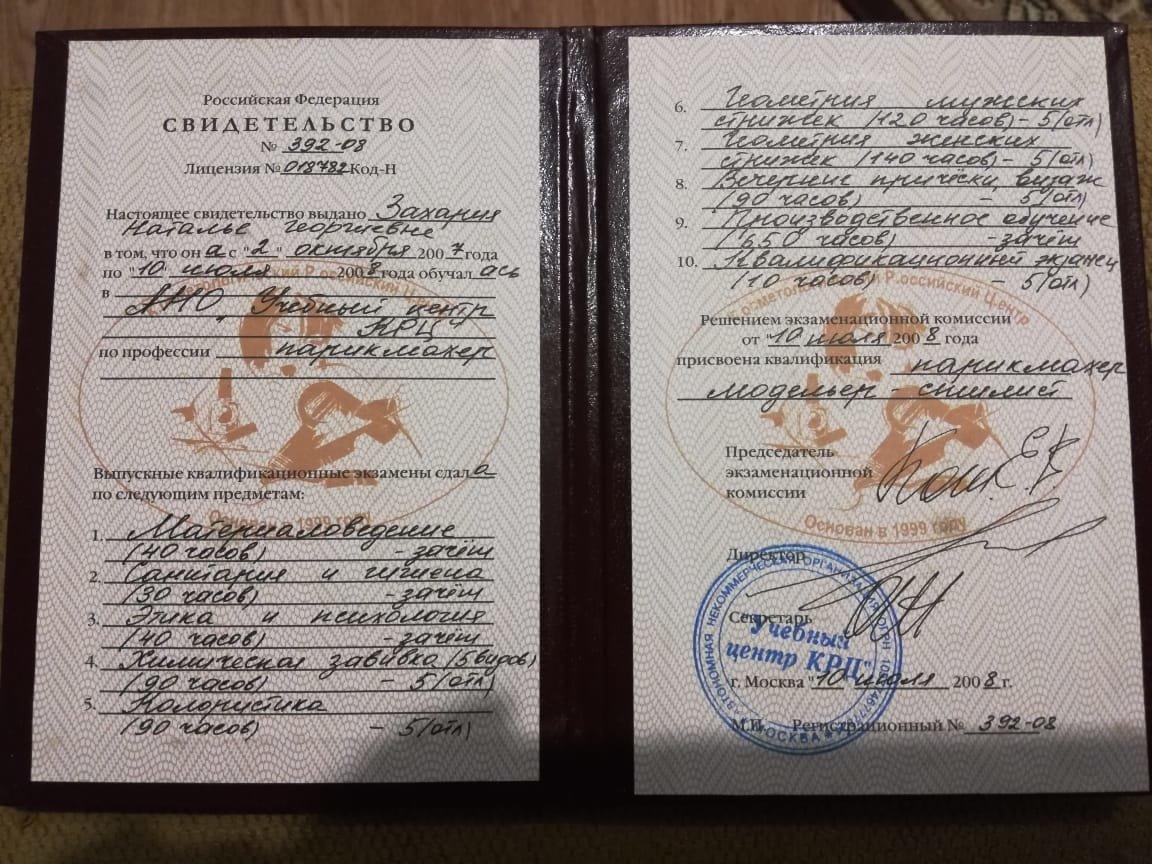 Российская Федерация
СВИДЕТЕЛЬСТВО
№ 392-08
Лицензия № 018782 Код-Н
Настоящее свидетельство выдано Захария
Наталье Георгиевне
в том, что он а с "2" октября 2007 года
по "10 июля 2008 года обучал ась
в
АНО "Учебный центр
КРЦ"
по профессии парикмахер
Выпускные квалификационные экзамены сдал а
по следующим предметам:
1. Материаловедение
(40 часов) - зачёт
2. Санитария и гигиена
(30 часов) - зачёт
3. Этика и психология
(40 часов) - зачёт
4. Химическая завивка (5 видов)
(90 часов) - 5 (отл)
5. Колористика
(90 часов) - 5 (отл)
Основан в 1999 году
6. Геометрия мужских
стрижек (120 часов) - 5 (отл)
7. Геометрия женских
стрижек (140 часов) - 5 (отл)
8. Вечерние прически, визаж
(90 часов) - 5 (отл)
9. Производственное обучение
(650 часов) - зачёт
10. Квалификационный экзамен
(10 часов) - 5 (отл)
Российский Центр
Решением экзаменационной комиссии
от "10 июля 2008 года
присвоена квалификация парикмахер
модельер - стилист
Председатель
экзаменационной
комиссии
Основан в 1999 году
Директор
Секретарь
г. Москва "10 июля 2008 г.
М.П. Регистрационный № 392-08
АВТОНОМНАЯ НЕКОММЕРЧЕСКАЯ ОРГАНИЗАЦИЯ ОГРН
"Учебный
центр КРЦ"
МОСКВА